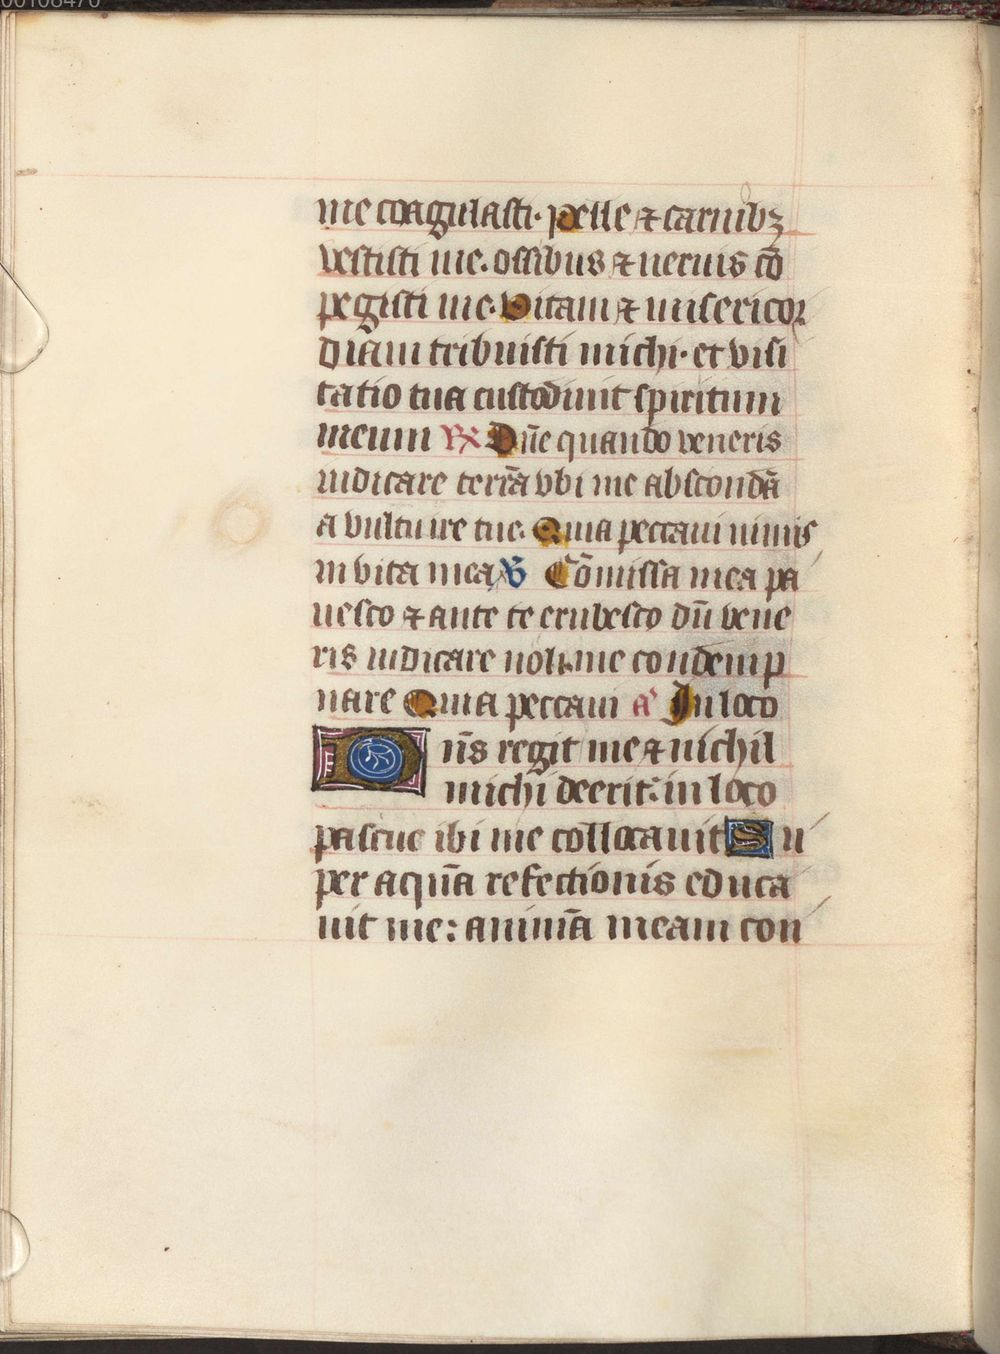 me coagulasti. Pelle ⁊ carnibꝫ
vestisti me. ossibus ⁊ neruis cō
pegisti me. Vitam ⁊ misericor
diam tribuisti michi. et visi
tatio tua custodiuit spiritum
meum R̃ Dn̄e quando veneris
iudicare terrā vbi me abscondā
a vultu ire tue. Quia peccaui nimis
in vita mea ℣ Cōmissa mea pa
uesco ⁊ ante te erubesco dū vene
ris iudicare noli me condemp
nare Quia peccaui aͥ In loco
Dn̄s regit me ⁊ nichil
michi deerit: in loco
pascue ibi me collocauit Su
per aquā refectionis educa
uit me: animā meam con